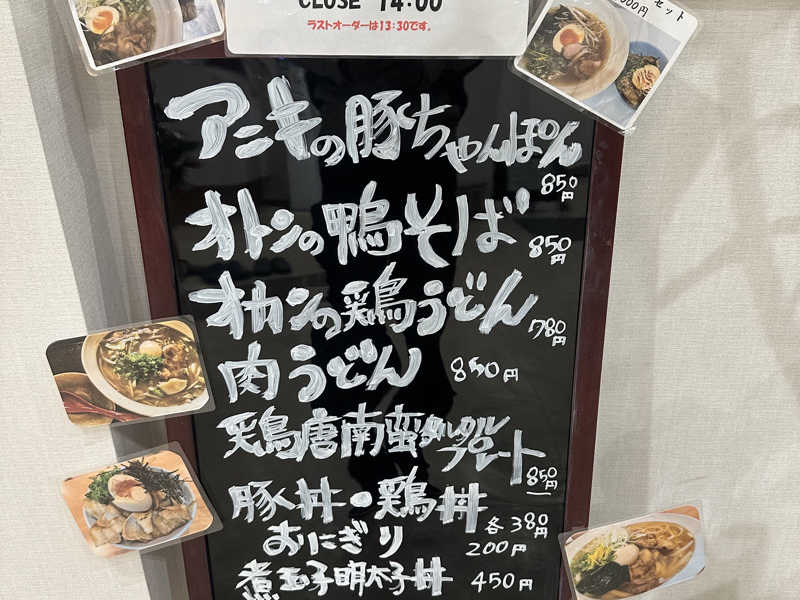 CLOSE 14:00
ラストオーダーは13:30です。
セット
000円
アニキの豚ちゃんぽん
850円
オトンの鴨そば
850円
オカンの鶏うどん
780円
肉うどん 850円
鶏唐南蛮タルタル
プレート
850円
豚丼・鶏丼
各380円
おにぎり
200円
煮玉子明太子丼 450円